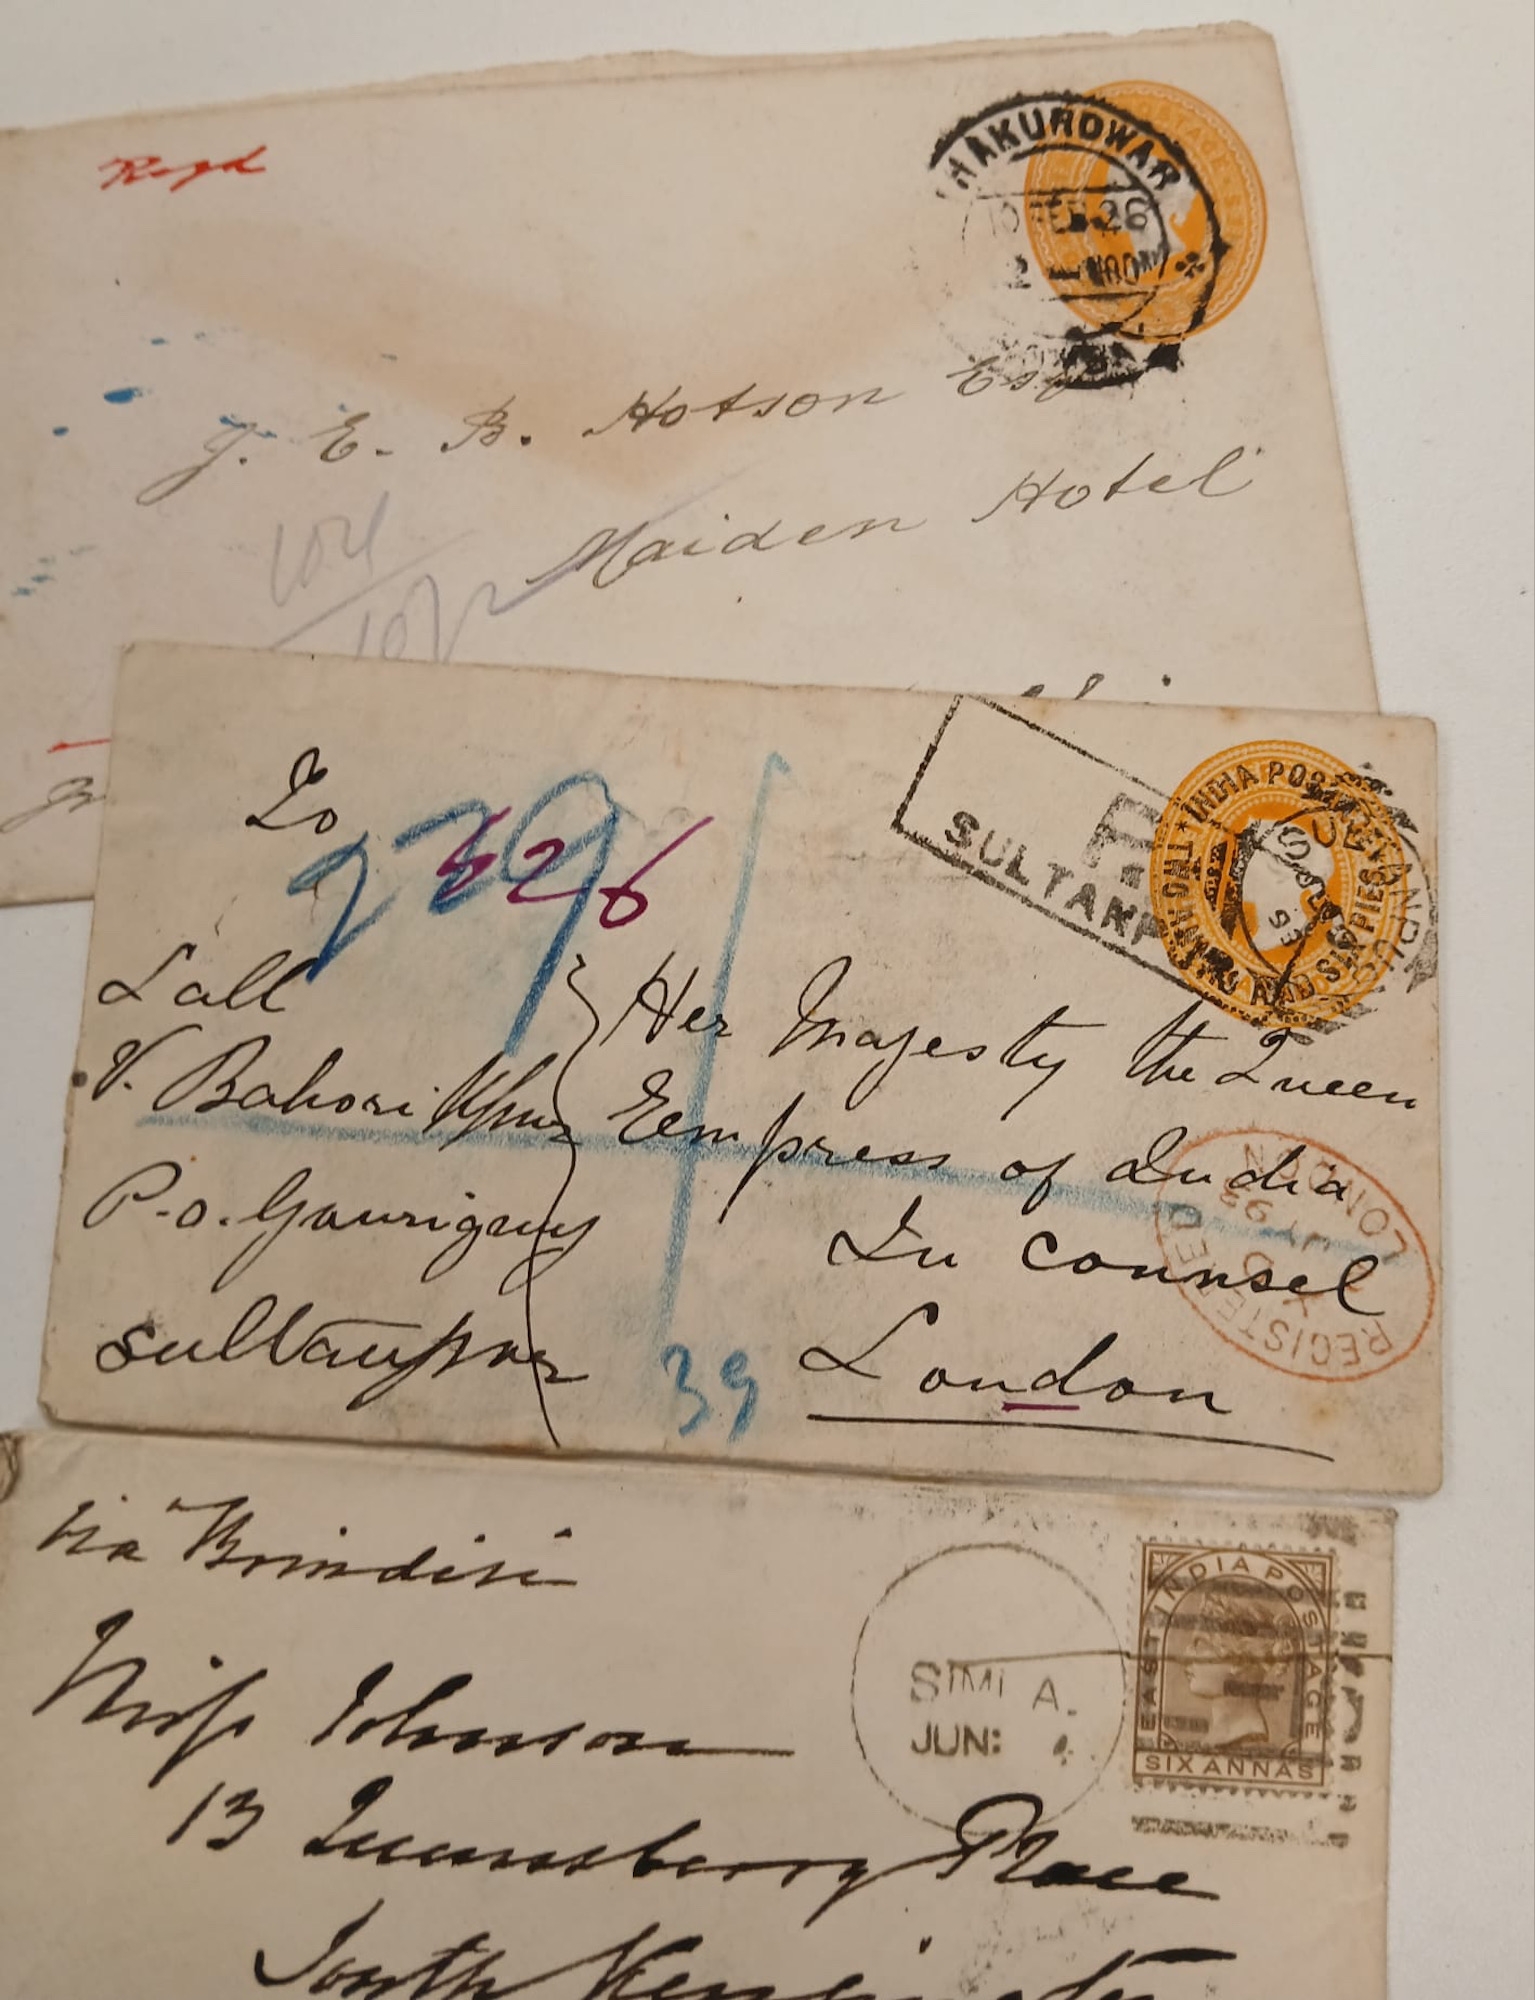 Regd
HAKURDWAR
10 FEB 26
J. E. B. Hotson Esq
Maiden Hotel
104
107
To
229
526
R
SULTANP
INDIA POSTAGE
TWO ANNAS AND SIX PIES
Lall
V. Bahori
P.O. Gauriganj
Sultanpur
Her Majesty the Queen
Empress of India
In counsel
London
39
REGISTERED
JY 93
LONDON
Via Brindisi
Miss Johnson
13 Queensberry Place
South Kensington
SIML A.
JUN:
EAST INDIA POSTAGE
SIX ANNAS